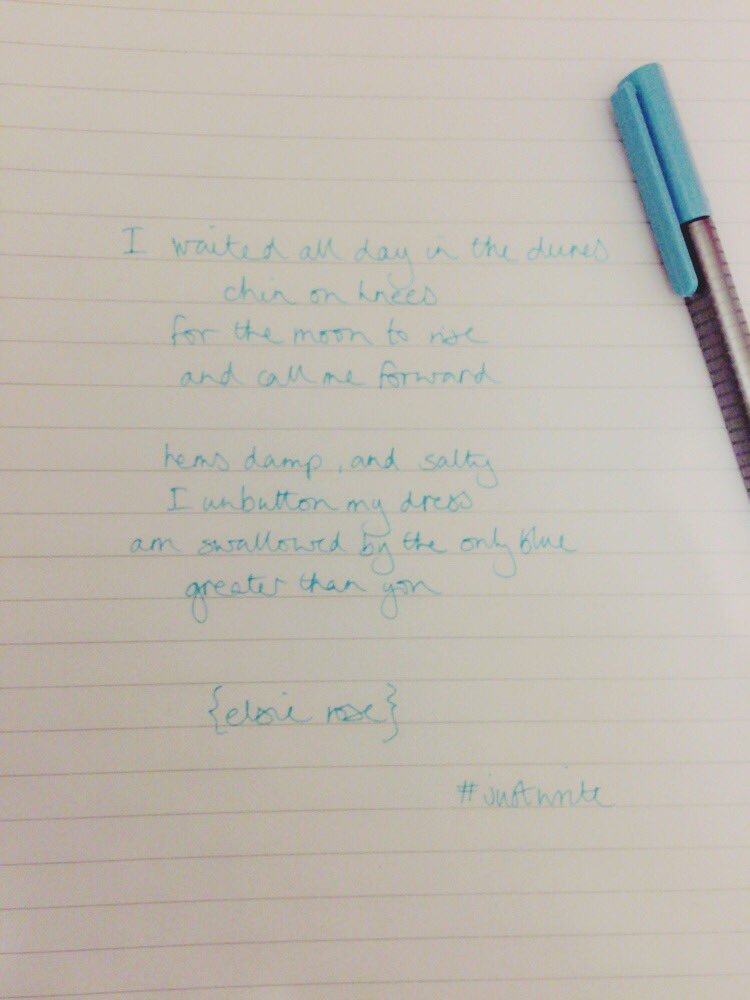 I waited all day in the dunes
chin on knees
for the moon to rise
and call me forward
hems damp, and salty
I unbutton my dress
am swallowed by the only blue
greater than you
{elsie rose}
#justwrite